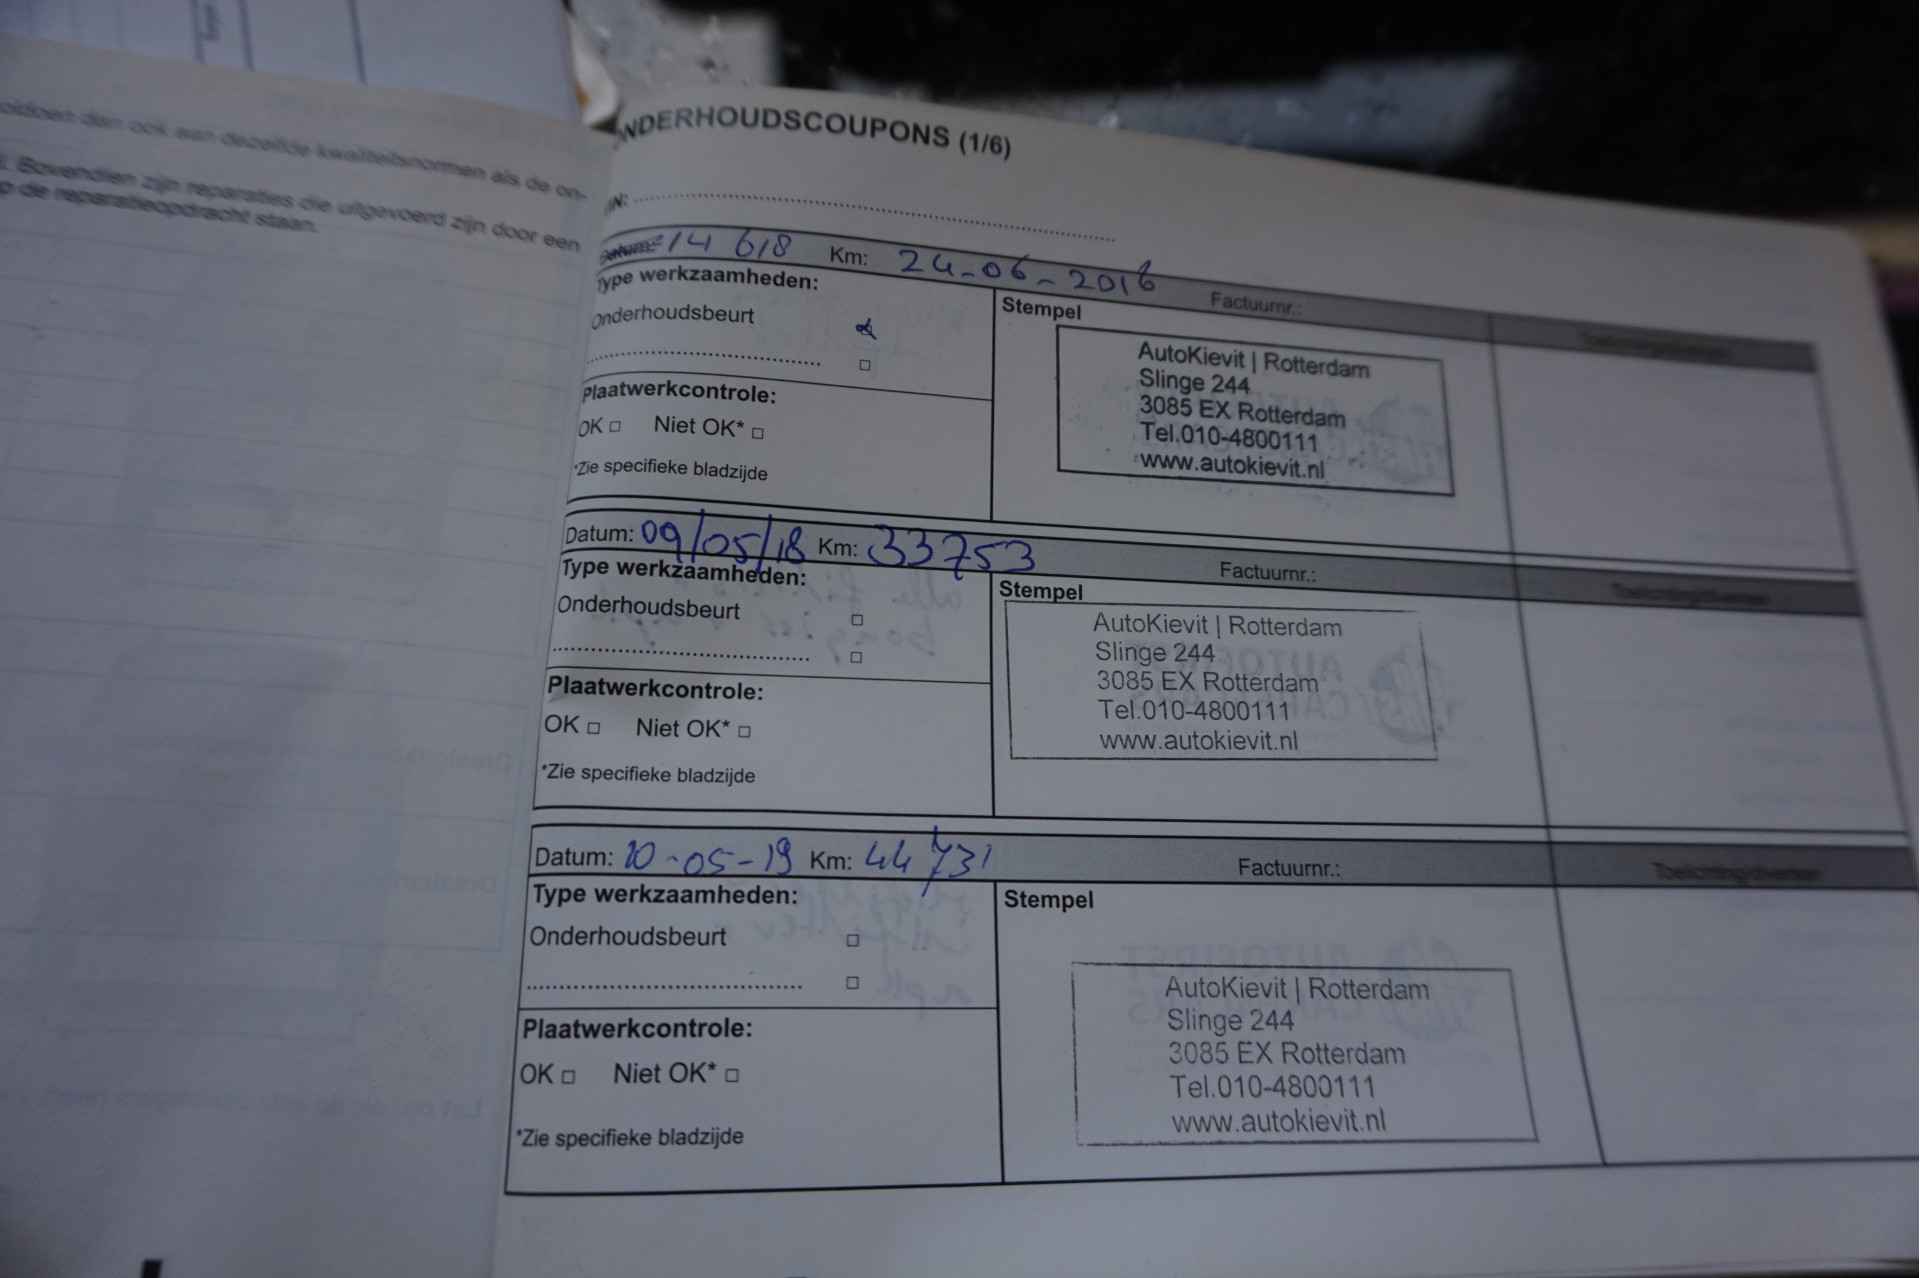 dan ook aan dezelfde kwaliteitsnormen als de on-
Bovendien zijn reparaties die uitgevoerd zijn door een
p de reparatieopdracht staan.
NDERHOUDSCOUPONS (1/6)
IN:
Datum: 14 618 Km: 24-06-2016 Factuurnr.:
Type werkzaamheden:
Stempel
Onderhoudsbeurt
Plaatwerkcontrole:
OK □ Niet OK* □
*Zie specifieke bladzijde
AutoKievit | Rotterdam
Slinge 244
3085 EX Rotterdam
Tel.010-4800111
www.autokievit.nl
Datum: 09/05/18 Km: 33753 Factuurnr.:
Type werkzaamheden:
Stempel
Onderhoudsbeurt □
□
Plaatwerkcontrole:
OK □ Niet OK* □
*Zie specifieke bladzijde
AutoKievit | Rotterdam
Slinge 244
3085 EX Rotterdam
Tel.010-4800111
www.autokievit.nl
Datum: 10-05-19 Km: 44731 Factuurnr.:
Type werkzaamheden:
Stempel
Onderhoudsbeurt □
□
Plaatwerkcontrole:
OK □ Niet OK* □
*Zie specifieke bladzijde
AutoKievit | Rotterdam
Slinge 244
3085 EX Rotterdam
Tel.010-4800111
www.autokievit.nl